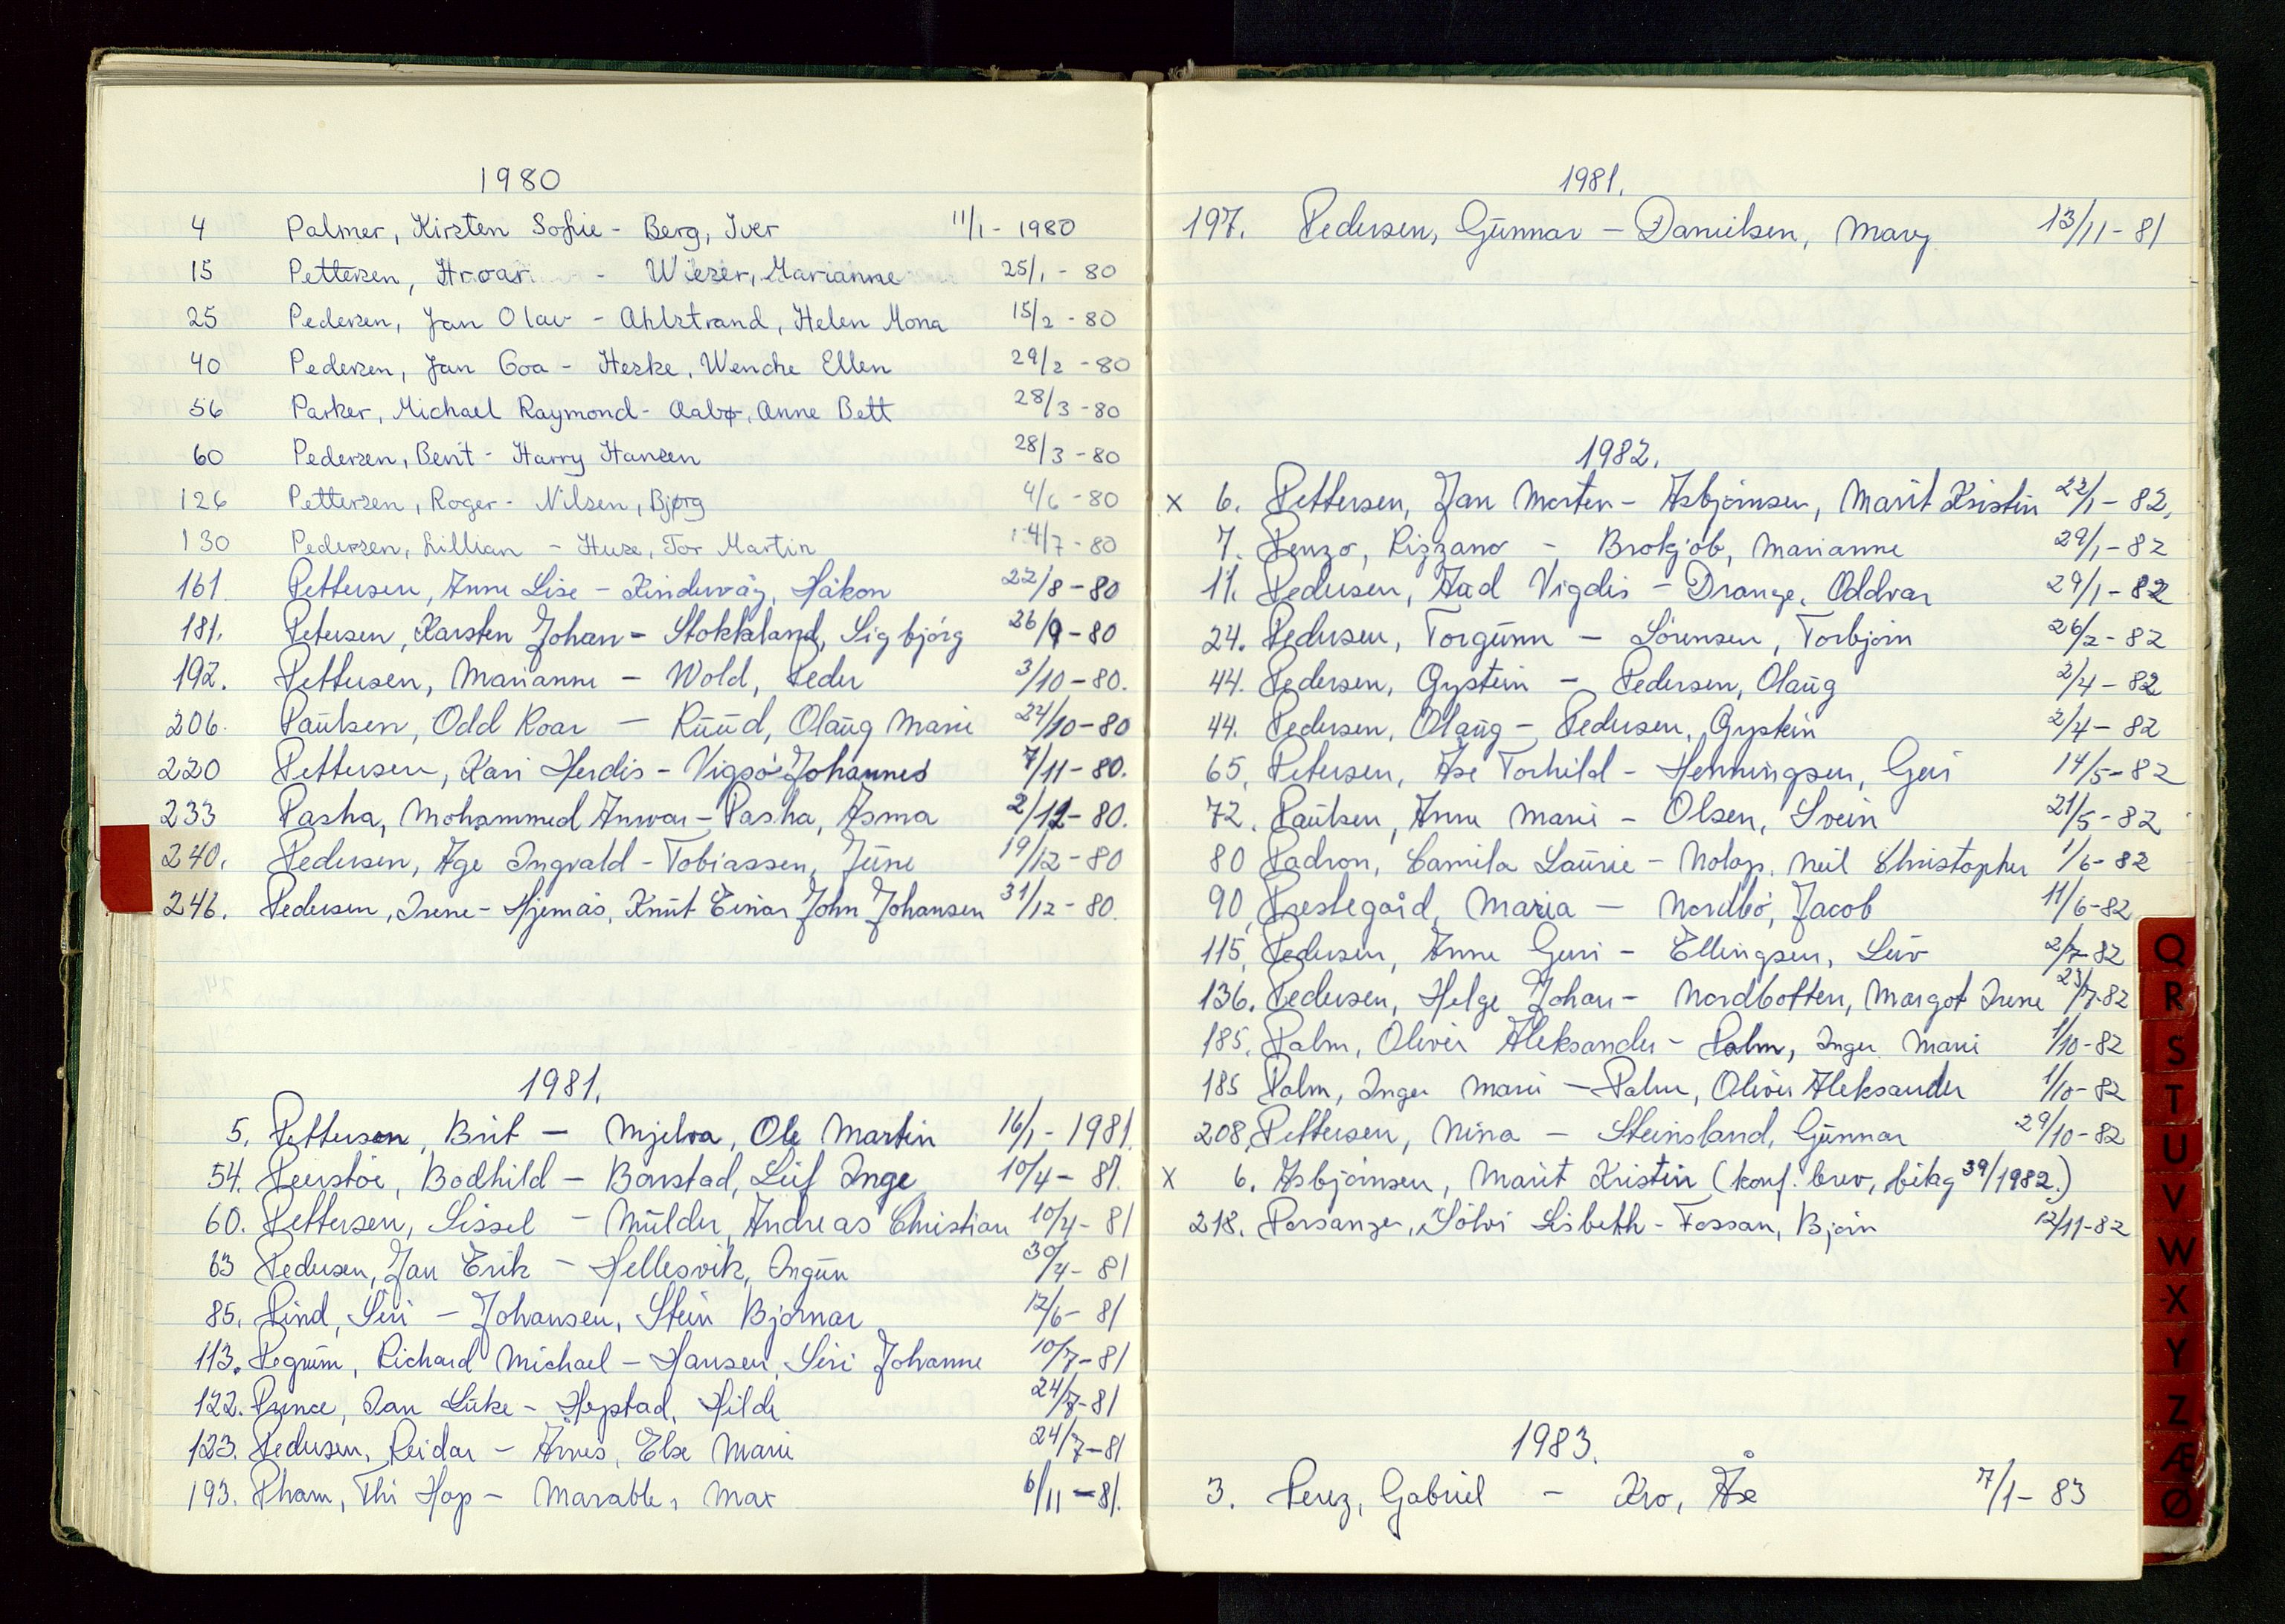 1980
4 Palmer, Kirsten Sofie - Berg, Iver 11/1 - 1980
15 Pettersen, Hroar - Wieser, Marianne 25/1 - 80
25 Pedersen, Jan Olav - Ahlstrand, Helen Mona 15/2 - 80
40 Pedersen, Jan Goa - Heske, Wenche Ellen 29/2 - 80
56 Parker, Michael Raymond - Aabø, Anne Bett 28/3 - 80
60 Pedersen, Berit - Harry Hansen 28/3 - 80
126 Pettersen, Roger - Nilsen, Bjørg 4/6 - 80
130 Pedersen, Lillian - Huse, Tor Martin 4/7 - 80
161. Pettersen, Anne Lise - Kindervåg, Håkon 22/8 - 80
181. Petersen, Karsten Johan - Stokkland, Sigbjörg 26/9 - 80
192. Pettersen, Marianne - Wold, Peder 3/10 - 80.
206. Paulsen, Odd Roar - Ruud, Olaug Marie 24/10 - 80
220 Pettersen, Kari Herdis - Vigsö Johannes 7/11 - 80.
233 Pasha, Mohammed Anwar - Pasha, Asma 2/12 - 80.
240. Pedersen, Åge Ingvald - Tobiassen, June 19/12 - 80
246. Pedersen, Irene - Hjemås, Knut Einar John Johansen 31/12 - 80.
1981.
5. Pettersen, Brit - Mjelva, Ole Martin 16/1 - 1981.
54. Peerstöe, Bodhild - Borstad, Leif Inge 10/4 - 81.
60. Pettersen, Sissel - Mulder, Andreas Christian 10/4 - 81
63 Pedersen, Jan Erik - Hellesvik, Ingun 30/4 - 81
85. Pind, Siri - Johansen, Stein Bjørnar 12/6 - 81
113. Pegrum, Richard Michael - Hansen, Siri Johanne 10/7 - 81
122. Prince, Ian Luke - Hepstad, Hilde 24/7 - 81
123. Pedersen, Reidar - Årnes, Else Marie 24/7 - 81
193. Pham, Thi Hop - Marable, Max 6/11 - 81.
1981.
197. Pedersen, Gunnar - Danielsen, Mary 13/11 - 81
1982.
x 6. Pettersen, Jan Morten - Asbjörnsen, Marit Kristin 22/1 - 82.
7. Renzo, Rizzano - Brokjøb, Marianne 29/1 - 82
11. Pedersen, Aad Vigdis - Drange, Oddvar 29/1 - 82
24. Pedersen, Torgunn - Sörensen, Torbjörn 26/2 - 82
44. Pedersen, Öystein - Pedersen, Olaug 2/4 - 82
44. Pedersen, Olaug - Pedersen, Öystein 2/4 - 82
65. Petersen, Åse Torhild - Henningsen, Geir 14/5 - 82
72. Paulsen, Anne Marie - Olsen, Svein 21/5 - 82
80 Padron, Camila Laurie - Nolop, Neil Christopher 1/6 - 82
90. Prestegård, Maria - Nordbö, Jacob 11/6 - 82
115. Pedersen, Anne Guri - Ellingsen, Leiv 2/7 - 82
136. Pedersen, Helge Johan - Nordbotten, Margot Irene 23/7 - 82
185. Palm, Oliver Aleksander - Palm, Inger Marie 1/10 - 82
185 Palm, Inger Marie - Palm, Oliver Aleksander 1/10 - 82
208. Pettersen, Nina - Steinsland, Gunnar 29/10 - 82
x 6. Asbjörnsen, Marit Kristin (konf. brev, bilag 39/1982.)
218. Porsanger, Sölvi Lisbeth - Fossan, Björn 12/11 - 82
1983.
3. Perez, Gabriel - Kro, Åse 7/1 - 83
Q
R
S
T
U
V
W
X
Y
Z
Æ
Ø